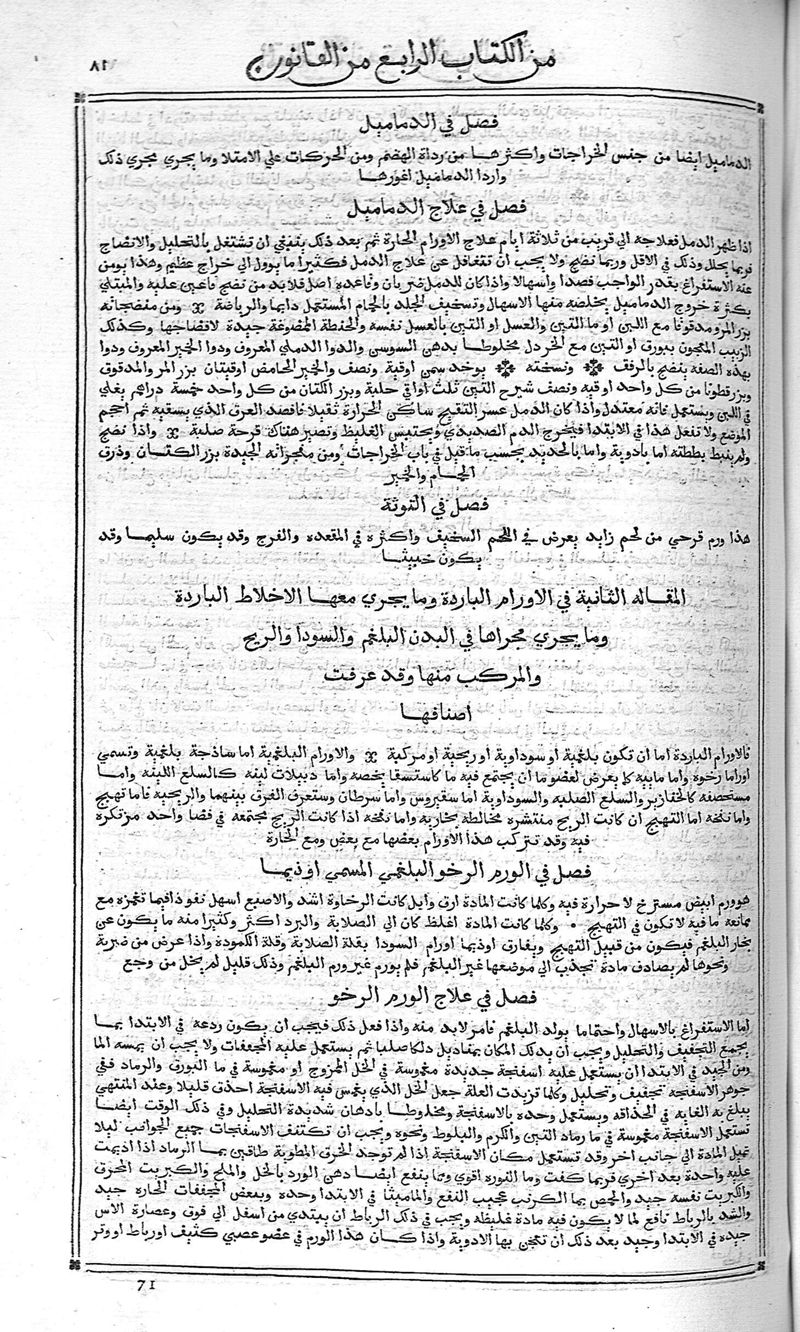 من الكتاب الرابع من القانون
٨١
فصل في الدماميل
الدماميل ايضا من جنس الخراجات واكثرها من رداة الهضم ومن الحركات علي الامتلا وما يجري مجري ذلك
واردا الدماميل اغورها
فصل في علاج الدماميل
اذا ظهر الدمل فعلاجه الي قريب من ثلاثة ايام علاج الاورام الحارة ثم بعد ذلك ينبغي ان تشتغل بالتحليل والانضاج
فربما يحلل وذلك في الاقل وربما نضج ولا يجب ان تتغافل عن علاج الدمل فكثيرا ما يوول الي خراج عظيم وهذا يومن
عنه الاستفراغ بقدر الواجب فصدا واسهالا واذا كان للدمل ضربان وقاعدة اصل فلابد من نضج فاعين عليه والمبتلي
بكثرة خروج الدماميل يخلصه منها الاسهال وتسخيف الجلد بالحمام المستعمل دايما والرياضة ومن منضجاته
بزر المرو مدقوقا مع اللبن او ما التين والعسل او التين بالعسل نفسه والحنطة الممضوغة جيدة لانضاجها وكذلك
الزبيب المعجون ببورق او التين مع الخردل مخلوطا بدهن السوسن والدوا الدملي المعروف ودوا الخمير المعروف ودوا
بهذه الصفه ينضج بالرفق ونسخته يوخذ سمن اوقية ونصف والخمير الحامض اوقيتان بزر المرو المدقوق
وبزر قطونا من كل واحد اوقيه ونصف شيرح التين ثلث اواقي حلبة وبزر الكتان من كل واحد خمسة دراهم يغلي
في اللبن ويستعمل فانه معتدل واذا كان الدمل عسر التقيح ساكن الحرارة ثقيلا فافصد العرق الذي يسقيه ثم احجم
الموضع ولا تفعل هذا في الابتدا فيخرج الدم الصديدي ويحتبس الغليظ وتصير هناك قرحة صلبة واذا نضج
ولم ينبط بططته اما بادوية واما بالحديد بحسب ما قيل في باب الخراجات ومن مفجراته الجيدة بزر الكتان وذرق
الحمام والخمير
فصل في التوثة
هذا ورم قرحي من لحم زايد يعرض في اللحم السخيف واكثره في المقعده والفرج وقد يكون سليما وقد
يكون خبيثا
المقاله الثانية في الاورام الباردة وما يجري معها الاخلاط الباردة
وما يجري مجراها في البدن البلغم والسودا والريح
والمركب منها وقد عرفت
اصنافها
فالاورام الباردة اما ان تكون بلغمية او سوداوية او ريحية او مركبة والاورام البلغمية اما ساذجة بلغمية وتسمي
اوراما رخوة واما مايية كما يعرض لعضو ما ان يجتمع فيه ما كاستسقا يخصه واما دبيلات لينه كالسلع اللينه واما
مستحصفه كالخنازير والسلع الصلبه والسوداوية اما سقيروس واما سرطان وستعرف الفرق بينهما والريحيه فاما تهيج
واما نفخه اما التهيج ان كانت الريح منتشره مخالطة بخاريه واما نفخه اذا كانت الريح مجتمعه في فضا واحد مرتكزه
فيه وقد تتركب هذا الاورام بعضها مع بعض ومع الحارة
فصل في الورم الرخو البلغمي المسمي اوذيما
هو ورم ابيض مسترخ لا حرارة فيه وكلما كانت المادة ارق وابل كانت الرخاوة اشد والاصبع اسهل نفوذا فيما تغمزه مع
ممانعه ما فيه لا تكون في التهيج وكلما كانت المادة اغلظ كان الي الصلابة والبرد اكثر وكثيرا منه ما يكون عن
بخار البلغم فيكون من قبيل التهيج ويفارق اوذيما اورام السودا بقلة الصلابة وقلة الكمودة واذا عرض من ضربة
ونحوها لم يصادف مادة تجذب الي موضعها غير البلغم فلم يورم غير ورم البلغم وذلك قليل لم يخل من وجع
فصل في علاج الورم الرخو
اما الاستفراغ بالاسهال واحتما ما يولد البلغم فامر لابد منه واذا فعل ذلك فيجب ان يكون ردعه في الابتدا بما
يجمع التجفيف والتحليل ويجب ان يدلك المكان بمناديل دلكا صلبا ثم يستعمل عليه المجففات ولا يجب ان يمسه الما
ومن الجيد في الابتدا ان يستعمل عليه اسفنجة جديدة مغموسة في الخل الممزوج او مغموسة في ما البورق والرماد ففي
جوهر الاسفنجة تجفيف وتحليل وكلما تزيدت العلة جعل الخل الذي يغمس فيه الاسفنجة احذق قليلا وعند المنتهي
يبلغ به الغايه في الحذاقه ويستعمل وحده بالاسفنجة ومخلوطا بادهان شديدة التحليل وفي ذلك الوقت ايضا
تستعمل الاسفنجة مغموسة في ما رماد التين والكرم والبلوط ونحوه ويجب ان تكتنف الاسفنجات جميع الجوانب ليلا
تميل المادة الي جانب اخر وقد تستعمل مكان الاسفنجة اذا لم توجد الخرق المطوية طاقين بما الرماد اذا اديمت
عليه واحدة بعد اخري فربما كفت وما النوره اقوي ومما ينفع ايضا دهن الورد بالخل والملح والكبريت المحرق
والكبريت نفسه جيد والحمص بما الكرنب عجيب النفع والماميثا في الابتدا وحده وببعض المجففات الحاره جيد
والشد بالرباط نافع لما لا يكون فيه مادة غليظه ويجب في ذلك الرباط ان يبتدي من اسفل الي فوق وعصارة الاس
جيده في الابتدا وجيد بعد ذلك ان تعجن بها الادوية واذا كان هذا الورم في عضو عصبي كثيف او رباط او وتر
71